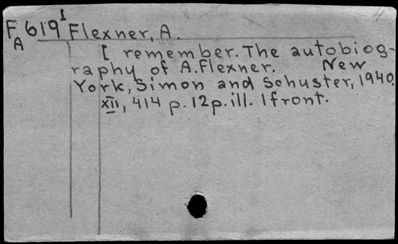 F 619 I Flexner, A.
A
I remember. The autobiog-
raphy of A. Flexner. New
York, Simon and Schuster, 1940.
XII, 414 p. 12p. ill. 1 front.